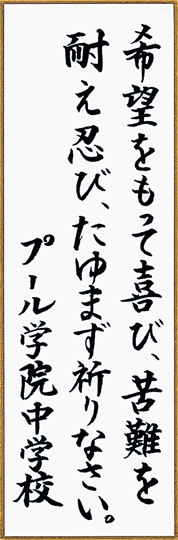 希望をもって喜び、苦難を
耐え忍び、たゆまず祈りなさい。
プール学院中学校